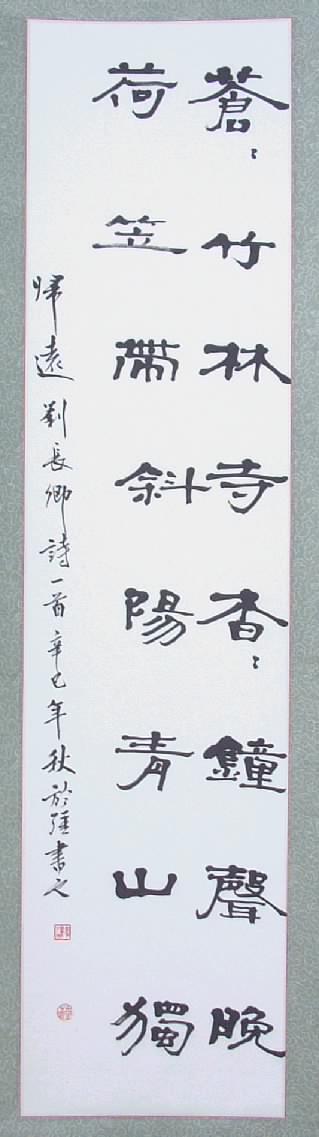 蒼〻竹林寺杳〻鐘聲晚
荷笠帶斜陽青山獨
歸遠 劉長卿詩一首 辛巳年秋 於書之